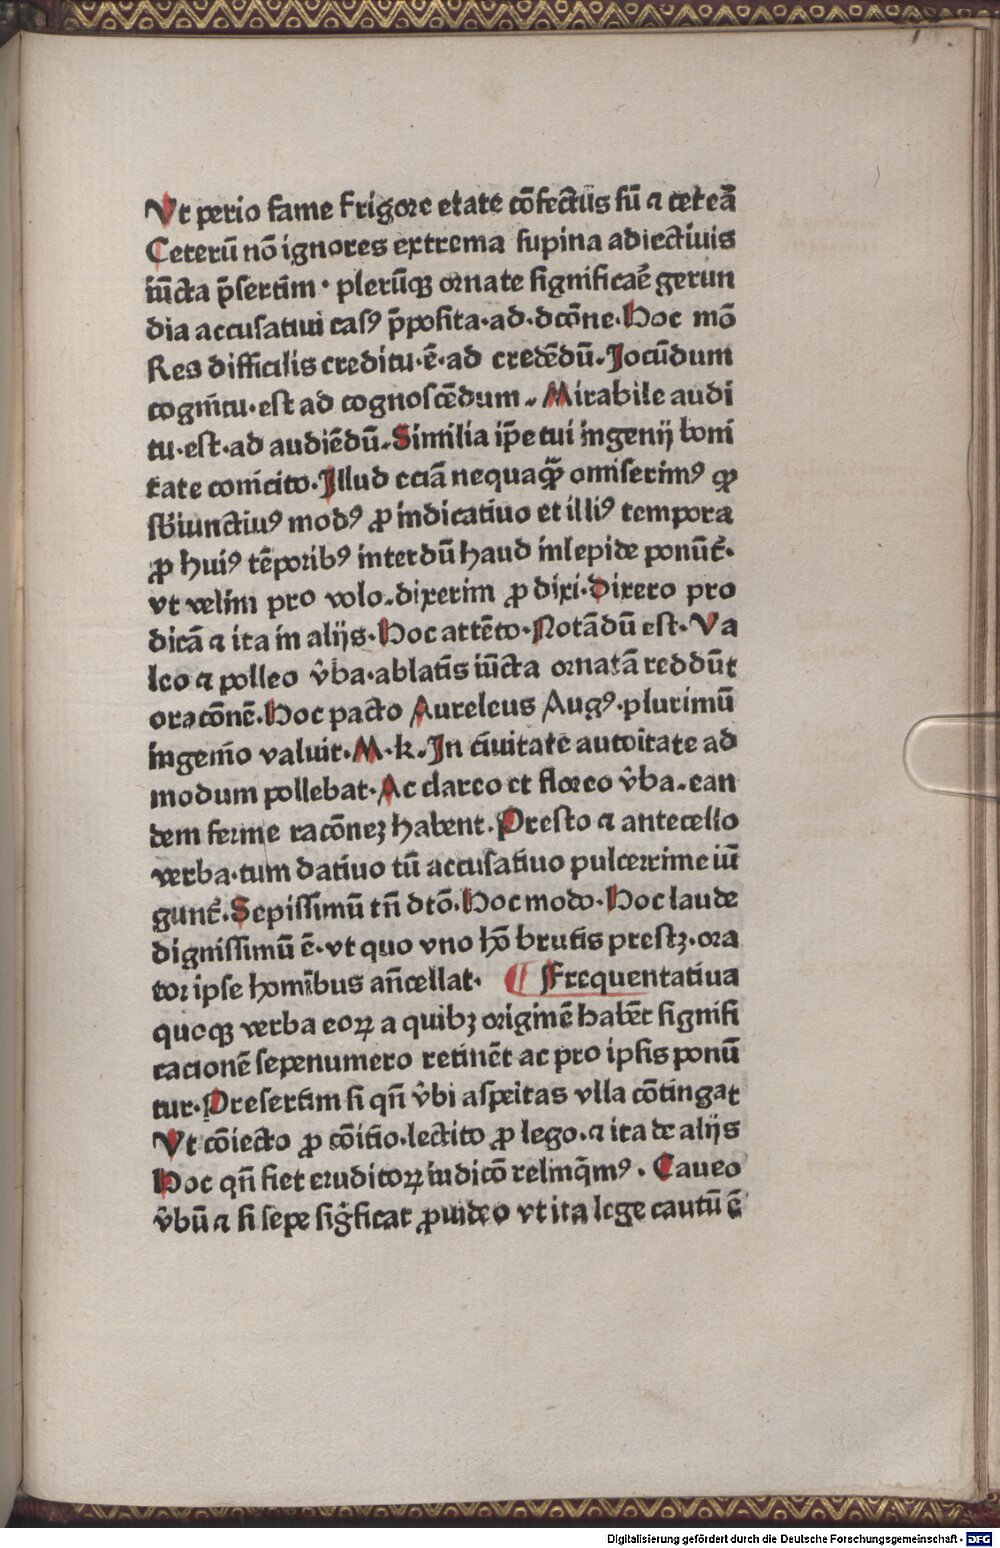 Vt perio fame frigore etate cōfectus sū ⁊ cet̄eā
Ceterū nō ignores extrema supina adiectiuis
iūcta p̄sertim · plerūqꝫ ornate significāe gerun
dia accusatiui casꝰ p̄posita·ad·dcōne·Hoc mō
Res difficilis creditu·ē·ad credēdū·Jocūdum
cogn̄itu·est ad cognoscēdum·Mirabile audi
tu·est·ad audiēdū·Similia ip̄e tui ingenij boni
tate conn̄icito·Illud eciā nequaꝙ̄ omiserimꝰ ꝙ
sb̄iunctiuꝰ modꝰ ꝓ indicatiuo et illiꝰ tempora
ꝓ huiꝰ tēporibꝰ interdū haud inlepide ponūt̄·
vt velim pro volo·dixerim ꝓ dixi·dixero pro
dicā ⁊ ita in alijs·Hoc attēto·Notādū est·Va
leo ⁊ polleo v̄ba·ablatis iūcta ornatā reddūt
oracōnē·Hoc pacto Aureleus Augꝰ·plurimū
ingen̄io valuit·M·k·In ciuitate autoitate ad
modum pollebat·Ac clareo et floreo v̄ba·ean
dem ferme racōneꝫ habent·Presto ⁊ antecello
verba·tum datiuo tū accusatiuo pulcerrime iū
gunt̄·Sepissimū tn̄ dtō·Hoc modo·Hoc laude
dignissimū ē·vt quo vno hō brutis prestꝫ·ora
tor ipse homībus an̄cellat· ¶ Frequentatiua
quoqꝫ verba eoꝝ a quibꝫ originē habēt signifi
cacionē sepenumero retinēt ac pro ipsis ponū
tur·Presertim si qn̄ v̄bi asp̄eitas vlla cōtingat
Vt cōiecto ꝓ cōitio·lectito ꝓ lego·⁊ ita de alijs
Hoc qn̄ fiet eruditoꝝ iudicō relinq̄mꝰ·Caueo
v̄bū ⁊ si sepe siḡficat ꝓuideo vt ita lege cautū ē
Digitalisierung gefördert durch die Deutsche Forschungsgemeinschaft - DFG